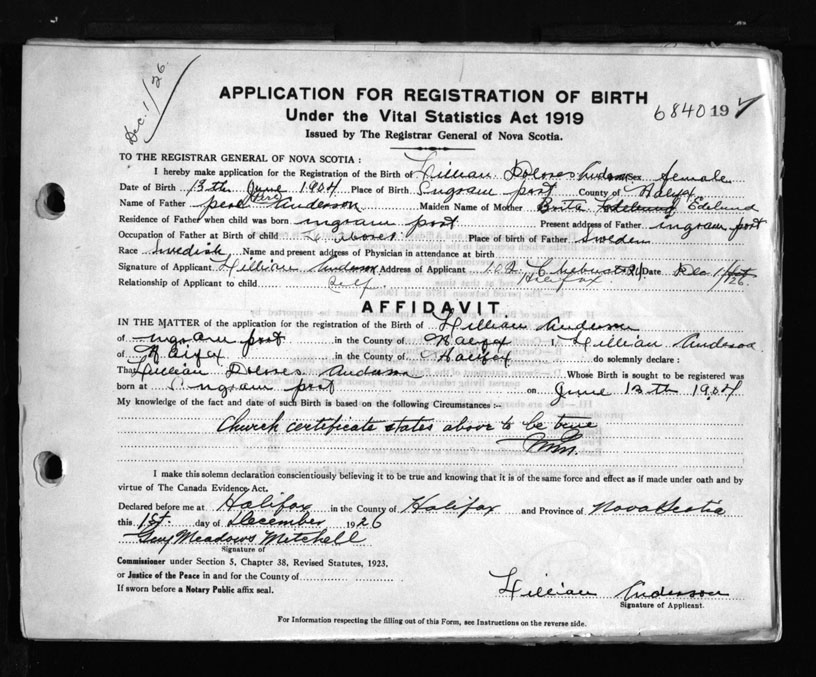 Dec. 1/26.
APPLICATION FOR REGISTRATION OF BIRTH
Under the Vital Statistics Act 1919
6840 197
Issued by The Registrar General of Nova Scotia.
TO THE REGISTRAR GENERAL OF NOVA SCOTIA :
I hereby make application for the Registration of the Birth of Lillian Dolores Anderson sex female
Date of Birth 13th June 1904 Place of Birth Ingram port County of Halifax
Name of Father Anderson Maiden Name of Mother Brita Edelund
Residence of Father when child was born ingram port Present address of Father ingram port
Occupation of Father at Birth of child Place of birth of Father Sweden
Race Swedish Name and present address of Physician in attendance at birth
Signature of Applicant Lillian Anderson Address of Applicant Halifax Date Dec 1/26
Relationship of Applicant to child self
AFFIDAVIT.
IN THE MATTER of the application for the registration of the Birth of Lillian Anderson
of ingram port in the County of Halifax I, Lillian Anderson
of Halifax in the County of Halifax do solemnly declare :
That Lillian Dolores Anderson Whose Birth is sought to be registered was
born at Ingram port on June 13th 1904
My knowledge of the fact and date of such Birth is based on the following Circumstances :-
Church certificate states above to be true
I make this solemn declaration conscientiously believing it to be true and knowing that it is of the same force and effect as if made under oath and by
virtue of The Canada Evidence Act.
Declared before me at Halifax in the County of Halifax and Province of Nova Scotia
this 1st day of December 1926
Guy Meadows Mitchell
Signature of
Commissioner under Section 5, Chapter 38, Revised Statutes, 1923,
or Justice of the Peace in and for the County of
If sworn before a Notary Public affix seal.
Lillian Anderson
Signature of Applicant.
For Information respecting the filling out of this Form, see Instructions on the reverse side.